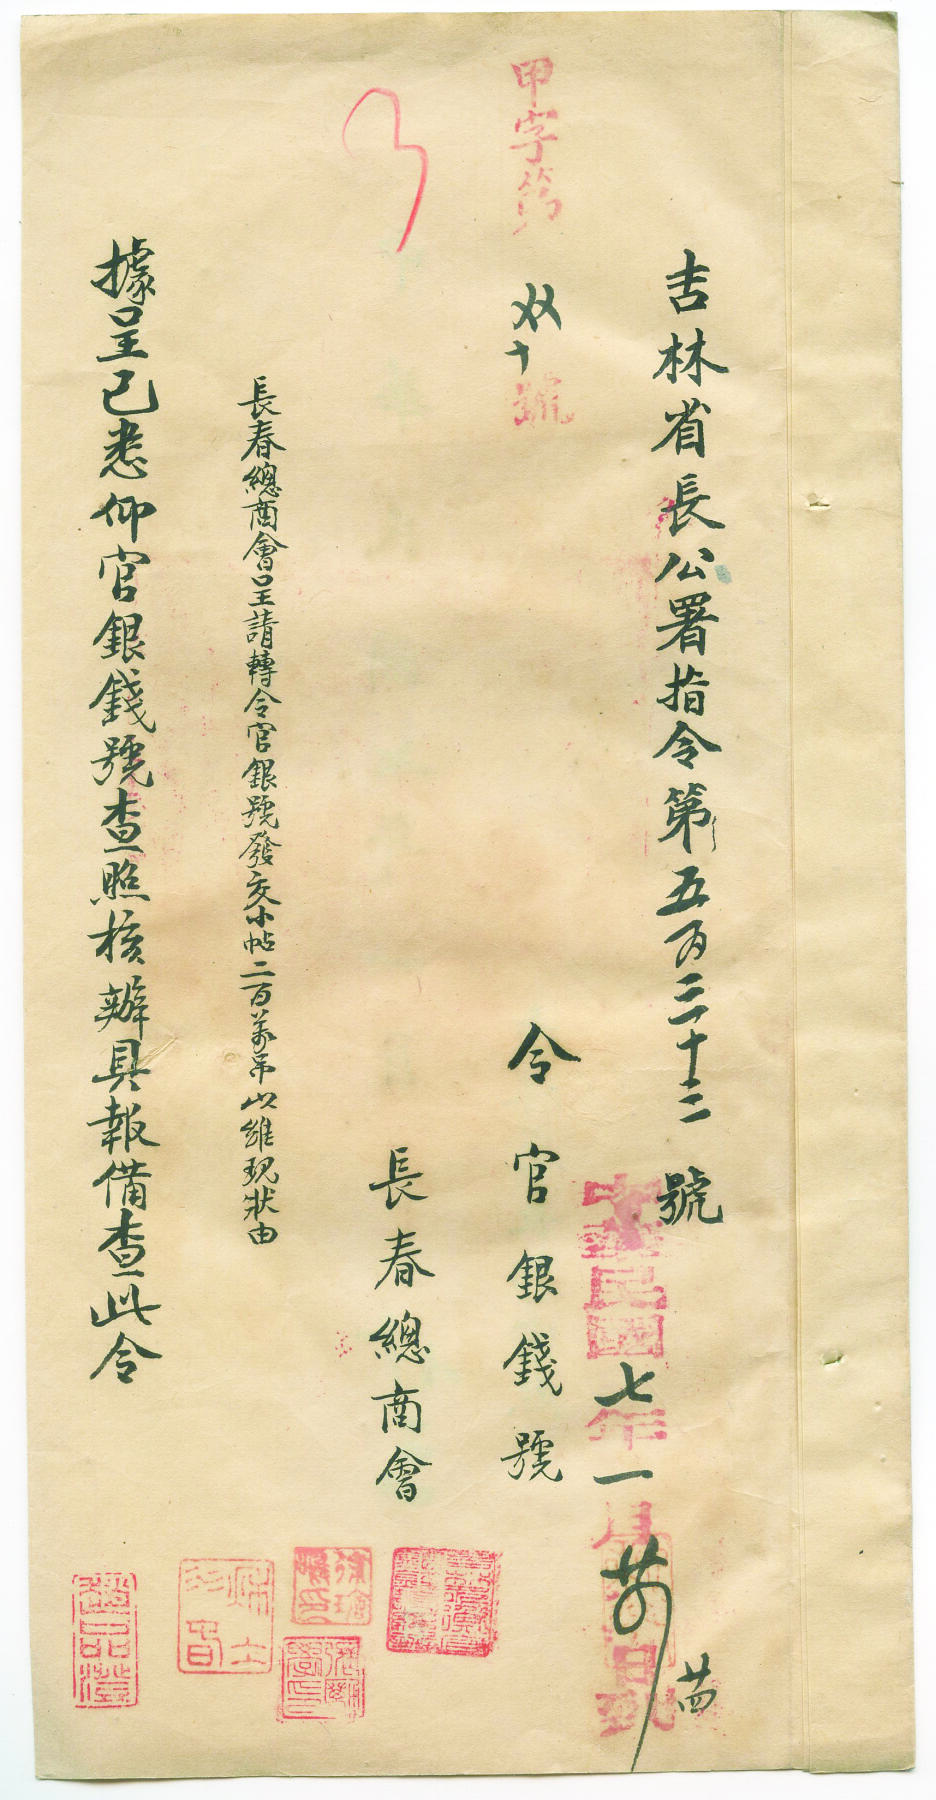 吉林省長公署指令第五百三十二號
中華民國七年一月廿
日到
甲字第
双十
號
令官銀錢號
長春總商會
長春總商會呈請轉令官銀號發交小帖二百萬吊以維現狀由
據呈已悉仰官銀錢號查照核辦具報備查此令
趙品澄